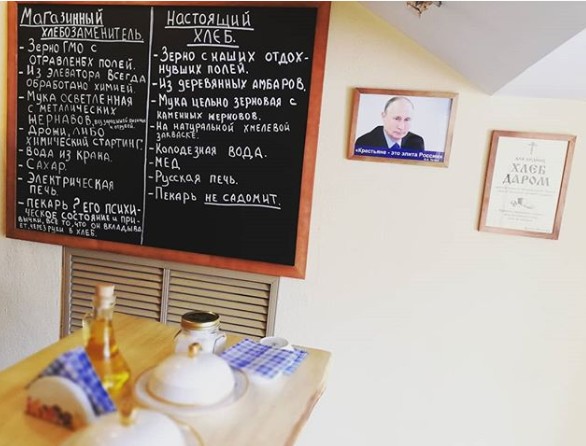 Магазинный
хлебозаменитель.
- Зерно ГМО с
отравленбх полей.
- Из элеватора всегда
обработано химией.
- Мука осветленная
с металических
жерновов,
- Дрожи, либо
химический стартинг.
- Вода из крана.
- Сахар.
- Электрическая
печь.
- Пекарь ? его психи-
ческое состояние и при-
вычки, все то, что он вкладыва
ет, через руки в хлеб.
Настоящий
хлеб.
- Зерно с наших отдох-
нувших полей.
- Из деревянных амбаров.
- Мука цельно зерновая с
каменных жерновов.
- На натуральной хмелевой
закваске.
- Колодезная вода.
- Мёд
- Русская печь.
- Пекарь не садомит.
«Крестьяне - это элита России»
ХЛЕБ
ДАРОМ